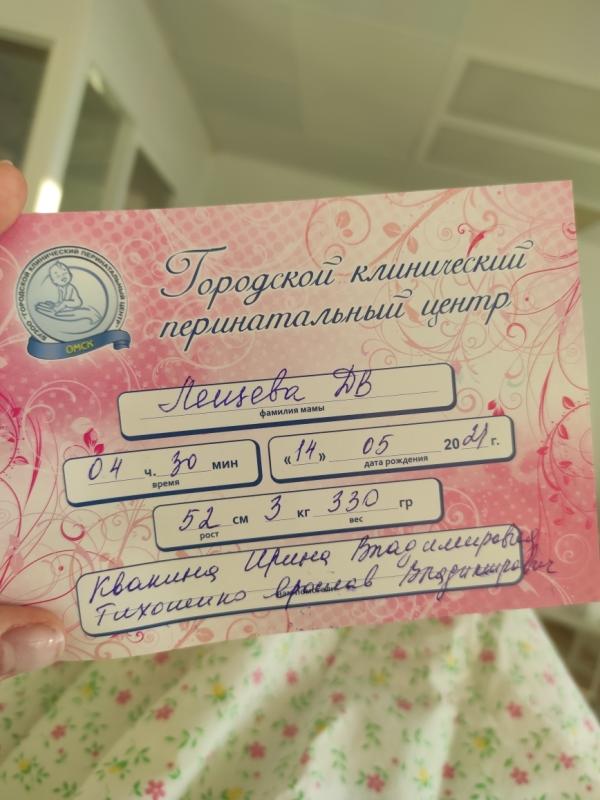 БУЗОО «ГОРОДСКОЙ КЛИНИЧЕСКИЙ ПЕРИНАТАЛЬНЫЙ ЦЕНТР»
ОМСК
Городской клинический
перинатальный центр
Лещева ДВ
фамилия мамы
04 ч. 30 мин
время
«14» 05 2021 г.
дата рождения
52 см 3 кг 330 гр
рост вес
Кванина Ирина Владимировна
Тихошенко Ярослав Владимирович